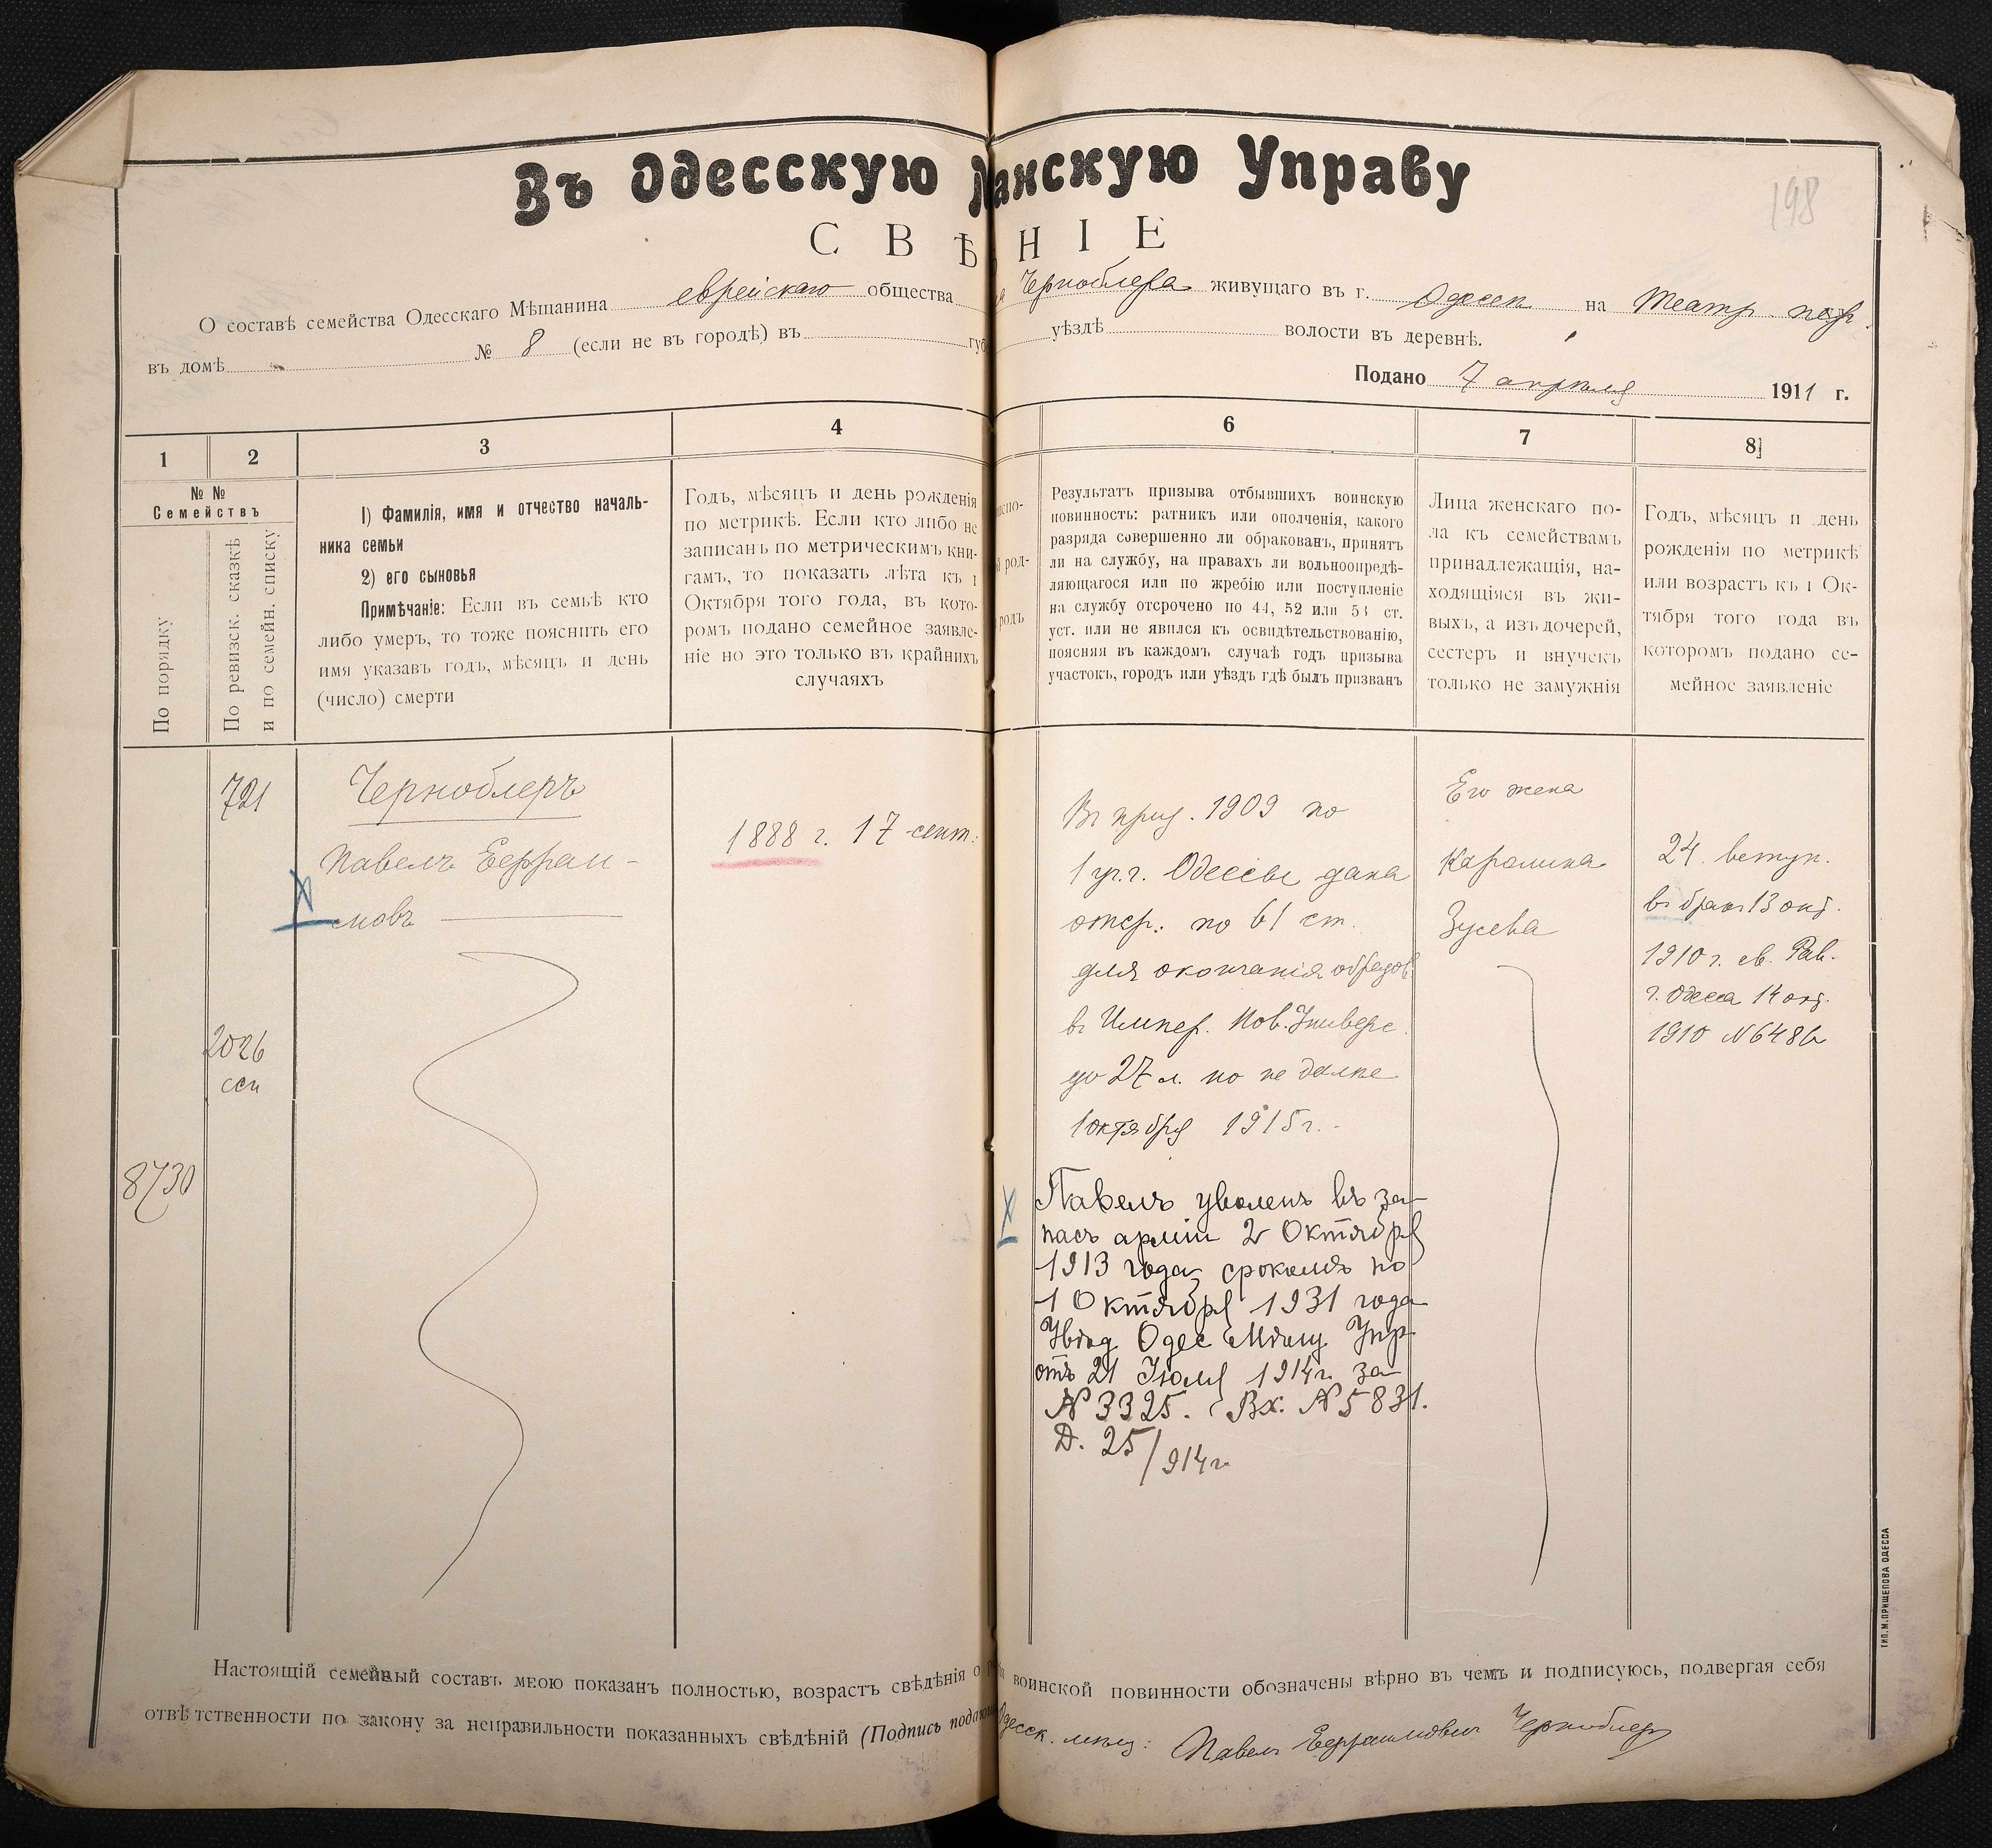 198
Въ Одесскую анскую Управу
СВѢ НІЕ
О составѣ семейства Одесскаго Мѣщанина еврейскаго общества Черноблера живущаго въ г. Одессѣ на Театр. пер.
въ домѣ № 8 (если не въ городѣ) въ губ уѣздѣ волости въ деревнѣ.
Подано 7 апрѣля 1911 г.
1 2 3 4 6 7 8
№ №
Семействъ
По порядку
По ревизск. сказкѣ
и по семейн. списку
1) Фамилія, имя и отчество началь-
ника семьи
2) его сыновья
Примѣчаніе: Если въ семьѣ кто
либо умеръ, то тоже пояснить его
имя указавъ годъ, мѣсяцъ и день
(число) смерти
Годъ, мѣсяцъ и день рожденія
по метрикѣ. Если кто либо не
записанъ по метрическимъ кни-
гамъ, то показать лѣта къ 1
Октября того года, въ кото-
ромъ подано семейное заявле-
ніе но это только въ крайнихъ
случаяхъ
исно-
й род-
родъ
Результатъ призыва отбывшихъ воинскую
повинность: ратникъ или ополченія, какого
разряда совершенно ли обракованъ, принятъ
ли на службу, на правахъ ли вольноопредѣ-
ляющагося или по жребію или поступленіе
на службу отсрочено по 44, 52 или 53 ст.
уст. или не явился къ освидѣтельствованію,
поясняя въ каждомъ случаѣ годъ призыва
участокъ, городъ или уѣздъ гдѣ былъ призванъ
Лица женскаго по-
ла къ семействамъ
принадлежащія, на-
ходящіяся въ жи-
выхъ, а изъ дочерей,
сестеръ и внучекъ
только не замужнія
Годъ, мѣсяцъ и день
рожденія по метрикѣ
или возрастъ къ 1 Ок-
тября того года въ
которомъ подано се-
мейное заявленіе
721
2026
ссп
8730
Черноблеръ
Павелъ Ефраи-
мовъ
1888 г. 17 сент.
Въ приз. 1909 по
1 уч. г. Одессы дана
отср. по 61 ст.
для окончанія образов.
въ Импер. Нов. Универс.
до 27 л. но не далѣе
1 октября 1915 г.
Павелъ уволенъ въ за-
пасъ арміи 2 Октября
1913 года, срокомъ по
1 Октября 1931 года
Увѣд Одес Мѣщ Упр
отъ 21 Іюля 1914 г. за
№ 3325. Вх. № 5831.
Д. 25/914 г
Его жена
Каролина
Зусева
24. вступ.
въ бракъ 13 окт.
1910 г. св. Рав.
г. Одесса 14 окт.
1910 № 6486
Настоящій семейный составъ мною показанъ полностью, возрастъ свѣдѣнія о воинской повинности обозначены вѣрно въ чемъ и подписуюсь, подвергая себя
отвѣтственности по закону за неправильности показанныхъ свѣдѣній (Подпись подаю Одесск. мѣщ: Павелъ Ефраимовичъ Черноблеръ
ТИП. М. ПРИЩЕПОВА ОДЕССА